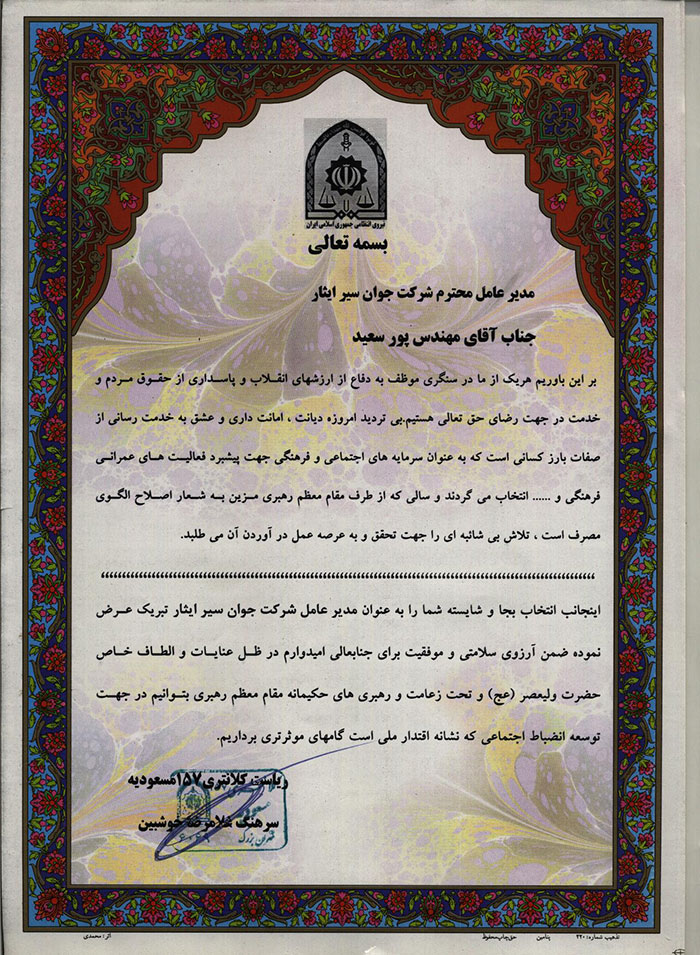 نیروی انتظامی جمهوری اسلامی ایران
بسمه تعالی
مدیر عامل محترم شرکت جوان سیر ایثار
جناب آقای مهندس پور سعید
بر این باوریم هریک از ما در سنگری موظف به دفاع از ارزشهای انقلاب و پاسداری از حقوق مردم و
خدمت در جهت رضای حق تعالی هستیم.بی تردید امروزه دیانت ، امانت داری و عشق به خدمت رسانی از
صفات بارز کسانی است که به عنوان سرمایه های اجتماعی و فرهنگی جهت پیشبرد فعالیت های عمرانی
فرهنگی و ...... انتخاب می گردند و سالی که از طرف مقام معظم رهبری مزین به شعار اصلاح الگوی
مصرف است ، تلاش بی شائبه ای را جهت تحقق و به عرصه عمل در آوردن آن می طلبد.
اینجانب انتخاب بجا و شایسته شما را به عنوان مدیر عامل شرکت جوان سیر ایثار تبریک عرض
نموده ضمن آرزوی سلامتی و موفقیت برای جنابعالی امیدوارم در ظل عنایات و الطاف خاص
حضرت ولیعصر (عج) و تحت زعامت و رهبری های حکیمانه مقام معظم رهبری بتوانیم در جهت
توسعه انضباط اجتماعی که نشانه اقتدار ملی است گامهای موثرتری برداریم.
ریاست کلانتری ۱۵۷ مسعودیه
سرهنگ غلامرضا خوشبین
تذهیب شماره: ۳۲۰ بنامین حق چاپ محفوظ اثر: محمدی